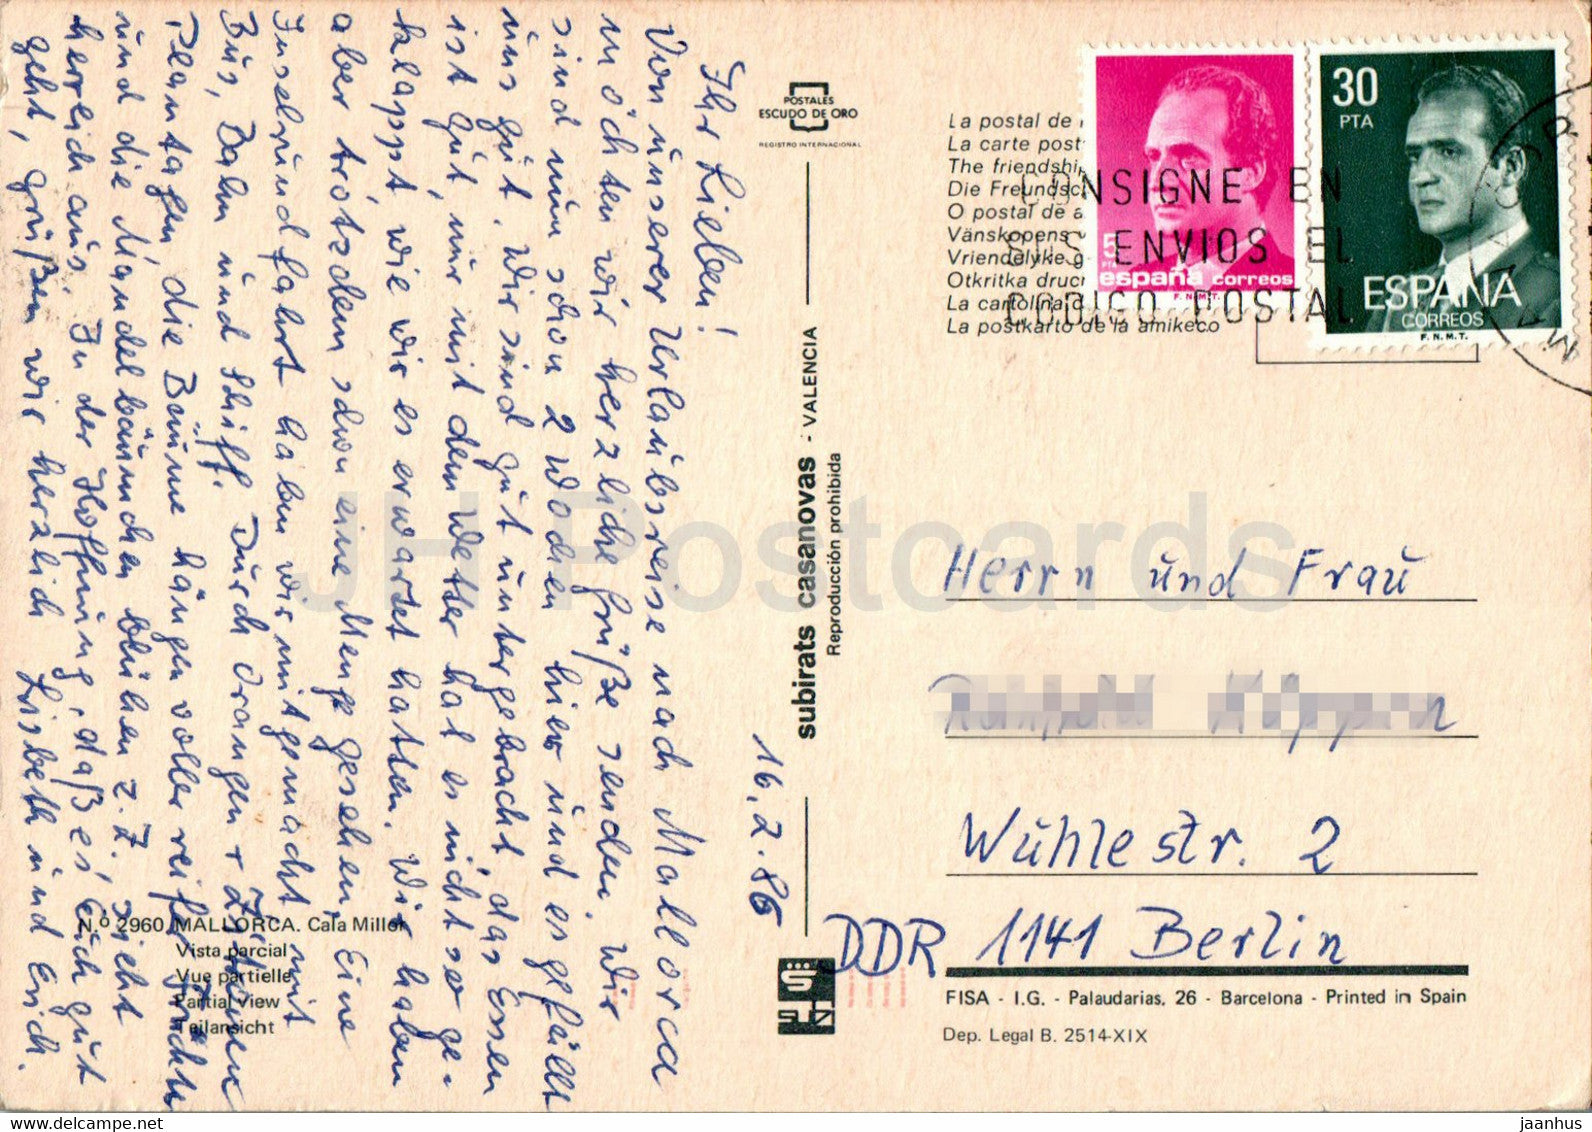 Ihr Lieben!
Von unserer Urlaubsreise nach Mallorca
möchten wir herzliche Grüße senden. Wir
sind nun schon 2 Wochen hier und es gefällt
uns gut. Wir sind gut untergebracht, das Essen
ist gut, nur mit dem Wetter hat es nicht so ge-
klappt, wie wir es erwartet hatten. Wir haben
aber trotzdem schon eine Menge gesehen. Eine
Inselrundfahrt haben wir mitgemacht mit
Bus, Bahn und Schiff. Durch Orangen + Zitronen
Plantagen, die Bäume hängen voller reifer Früchte
und die Mandelbäumchen blühen z. Z. sieht
herrlich aus. In der Hoffnung, daß es Euch gut
geht, grüßen wir herzlich Lisbeth und Erich.
16.2.86
Nº 2960 MALLORCA. Cala Millor
Vista parcial
Vue partielle
Partial view
Teilansicht
POSTALES
ESCUDO DE ORO
REGISTRO INTERNACIONAL
subirats casanovas - VALENCIA
Reproducción prohibida
La postal de
La carte post
The friendshi
Die Freundsc
O postal de a
Vänskopens
Vriendelyke g
Otkritka druc
La cartolina
La postkarto de la amikeco
5
PTA
españa correos
F.N.M.T.
30
PTA
ESPAÑA
CORREOS
F.N.M.T.
CONSIGNE EN
SUS ENVIOS EL
CODIGO POSTAL
Herrn und Frau
Wühlestr. 2
DDR 1141 Berlin
FISA - I.G. - Palaudarias, 26 - Barcelona - Printed in Spain
Dep. Legal B. 2514-XIX
JH Postcards
www.hippostcard.com
jaanhus